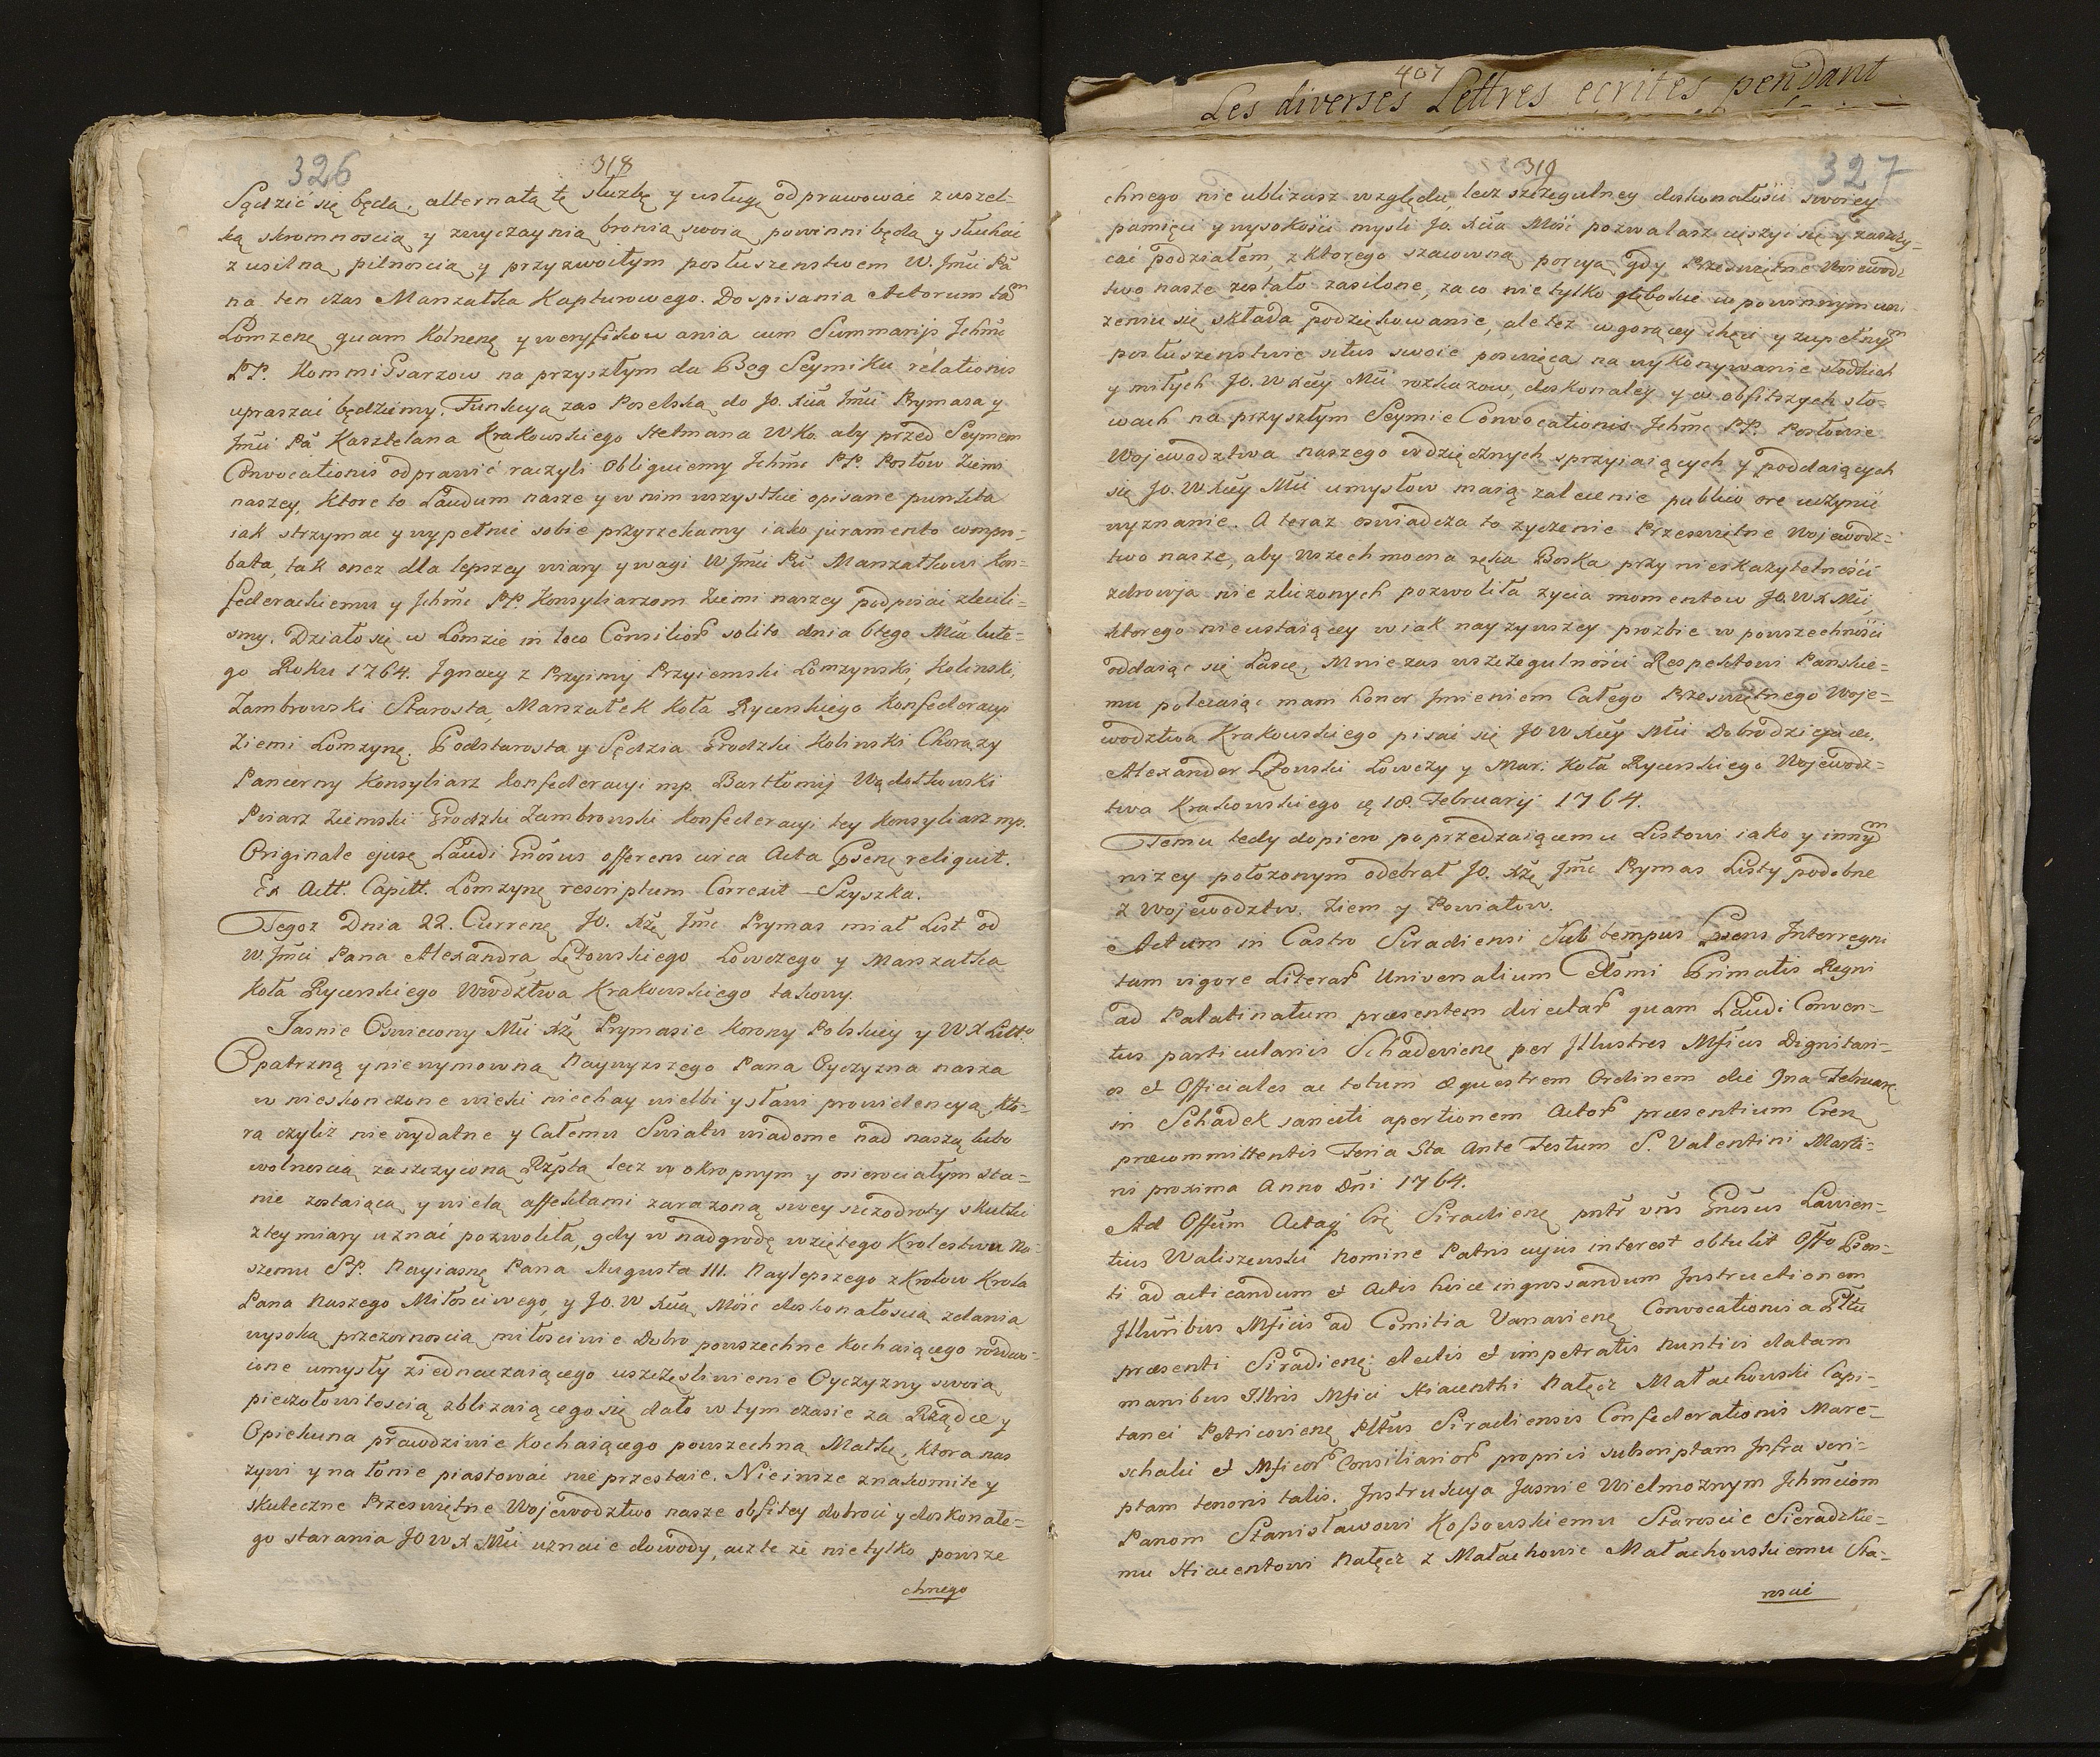 326
318
Sądzić się będą, alternatą tę służbę y usługę odprawować z wszel-
ką skromnoscią y zwyczaynią bronią swoią powinni będą y słuchać
z usilną pilnoscią y przyzwoitym posłuszenstwem W. Jmci Pa
na ten czas Marszałka Kapturowego. Do spisania Actorum tam
Łomżenę quam Kolnenę y weryfikowania cum Summarijs Ichmć
PP. Kommissarzow na przyszłym da Bog Seymiku relationis
upraszać będziemy. Funkcyą zas Poselską do Jo. Xcia Jmci Prymasa y
Jmci Pa Kasztelana Krakowskiego Hetmana WKo. aby przed Seymem
Convocationis odprawić raczyli Obliguiemy Ichmć PP. Posłow Ziemi
naszey, ktore to Laudum nasze y w nim wszystkie opisane punkta
iak strzymac y wypełnić sobie przyrzekamy iako juramento compro-
bata, tak onez dla lepszey wiary y wagi W Jmci Pu Marszałkowi Kon-
federackiemu y Ichmć PP. Konsyliarzom Ziemi naszey podpisać zleci-
smy. Działo się w Łomzie in loco Consilior solito dnia 6tego Mca lute-
go Roku 1764. Jgnacy z Przyimy Przyiemski Łomzynski, Kolinski,
Zambrowski Starosta, Marszałek Koła Rycerskiego Konfederacyi
Ziemi Łomzynę. Podstarosta y Sędzia Grodzki Kolinski Chorązy
Pancerny Konsyliarz Konfederacyi mp. Bartłomij Wądołkowski
Pisarz Ziemski Grodzki Zambrowski Konfederacyi tey Konsyliarz mp.
Originale ejusę Laudi Gnosus offerens circa Acta Psenę reliquit.
Ex Actt. Capitt. Łomzynę rescriptum Correxit Szyszka.
Tegoz Dnia 22. Currenę JO. Xżę Jmć Prymas miał List od
W. Jmci Pana Alexandra Lętowskiego Łowczego y Marszałka
Koła Rycerskiego Wwodztwa Krakowskiego takowy.
Jasnie Oswiecony Mci Xżę Prymasie Korony Polskiey y WX Litt.
Opatrzną y niewymowną Naywyzszego Pana Oyczyzna nasza
w nieskonczone wieki niechay wielbi y sławi prowidencyą, kto-
ra czyliz niewydatne y Całemu Swiatu wiadome nad naszą lubo
wolnoscią zaszczyconą Rzptą lecz w okropnym y osierociałym sta-
nie zostaiącą y wielą affektami zarazoną swey szczodroty skutki
z tey miary uznać pozwoliła, gdy w nadgrodę wziętego Krolestwu Na-
szemu SP. Nayiasnę Pana Augusta III. Naylepszego z Krolow Krola
Pana Naszego Miłosciwego, y JO. W Xcią Mość doskonałoscią zdania
wysoką przezornoscią miłosciwie Dobro powszechne Kochaiącego rozdwo-
ione umysły ziednaczaiącego uszczęsliwienie Oyczyzny swoią
pieczołowitoscią zblizaiącego się dało w tym czasie za Rządcę y
Opiekuna prawdziwie kochaiącego powszechną Matkę, ktora nas
zywi y na łonie piastować nie przestaie. Nieinsze znakomite y
skuteczne Przeswiętne Wojewodztwo nasze obfitey dobroci y doskonałe-
go starania JO W X Mci uznaie dowody, aczte zé nietylko powsze
chnego
407
Les diverses Lettres ecrites pendant
319
327
chnego nie ublizasz względu lecz szczegulney doskonałości swoiey
pamięci y wysokości mysli Jo. Xcia Mość pozwalasz cieszyć się y zaszczy-
cać podziałem, z ktorego szacowną porcyą gdy Przeswiętne Woiewodz
two nasze zostało zasilone, za co nietylko głębokie w powinnym usza
zeniu się składa podziękowanie, ale tez w gorącey chęci y zupełnym
posłuszenstwie situs swoie poswięca na wykonywanie słodkich
y miłych JO. W Xcey Mci rozkazow, doskonaley y w obfitszych sło-
wach na przyszłym Seymie Convocationis Ichmć PP. Posłowie
Wojewodztwa naszego wdzięcznych sprzyiaiących y poddaiących
się JO. W Xcey Mci umysłow maią zalecenie publico ore uczynić
wyznanie. A teraz oswiadcza to zyczenie Przeswiętne Wojewodz-
two nasze, aby Wszechmocna ręka Boska przy nieskazytelności
zdrowja niezliczonych pozwoliła zycia momentow JO. W X Mci,
ktorego nieustaiącey w iak nayzywszey prozbie w powszechności
oddaiąc się Łasce, Mnie zas wszczegulności Respektowi Panskie-
mu polecaiąc mam honor Jmieniem Całego Przeswiętnego Woje-
wodztwa Krakowskiego pisać się JO W Xcey Mci Dobrodzieja etc.
Alexander Lętowski Łowczy y Mar: Koła Rycerskiego Wojewodz-
twa Krakowskiego d. 18. February 1764.
Temu tedy dopiero poprzedzaiącemu Listowi iako y innym
nizey położonym odebrał JO. Xżę Jmć Prymas Listy podobne
z Wojewodztw. Ziem y Powiatow.
Actum in Castro Siradiensi Sub tempus Psens Interregni
tam vigore Literar Universalium Celsmi Primatis Regni
ad Palatinatum præsentem directar quam Laudi Conven-
tus particularis Schadevienę per Jllustres Mficos Dignitari-
os et Officiales ac totum æquestrem Ordinem die 9na Februarę
in Schadek sanciti apertionem Actor præsentium Cren
præcommittentis Feria 3ta Ante Festum S. Valentini Marti-
ni proxima Anno Dni 1764.
Ad Offum Actaq Crę Siradienę pntr vns Gnosus Lauren-
tius Waliszewski Nomine Patris cujus interest obtulit Offo Psen-
ti ad acticandum et Actis hisce ingrossandum Jnstructionem
Jlluribus Mficis ad Comitia Varsavienę Convocationis a Pltu
præsenti Siradienę electis et impetratis Nuntiis datam
manibus Jllris Mfici Hiacenthi Nałęcz Małachowski Capi-
tanei Petricovienę Pltus Siradiensis Confederationis Mare-
schalci et Mficor Consiliarior propriis subscriptam Jnfra scri-
ptam tenoris talis. Jnstrukcya Jasnie Wielmoznym Ichmciom
Panom Stanisławowi Kossowskiemu Staroscie Sieradzkie-
mu Hiacentowi Nałęcz z Małachowic Małachowskiemu Sta-
roscie